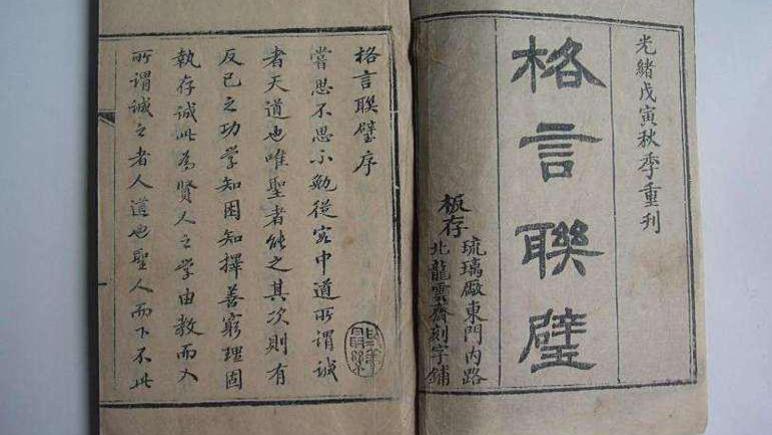 光緒戊寅秋季重刊
格言聯璧
板存
琉璃廠東門內路
北龍雲齋刻字鋪
格言聯璧序
嘗思不思不勉從容中道所謂誠
者天道也唯聖者能之其次則有
反己之功学知困知擇善窮理固
執存誠此為賢人之学由教而入
所謂誠之者人道也聖人而下不此